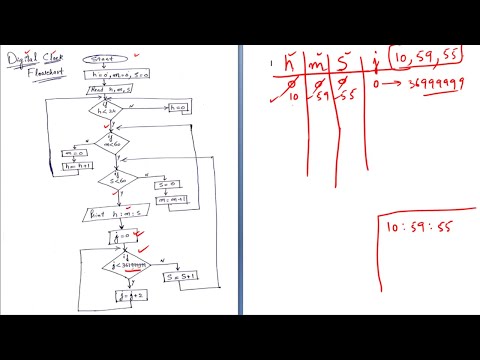 Digital Clock
Flowchart
Start
h=0, m=0, s=0
Read h, m, s
if
h<24
N
h=0
Y
if
m<60
N
m=0
h=h+1
Y
if
s<60
N
s=0
m=m+1
Y
Print h:m:s
j=0
if
N
s=s+1
Y
j=j+2
h m s j 10, 59, 55
0 0 0
10 59 55 0 → 36999999
10:59:55